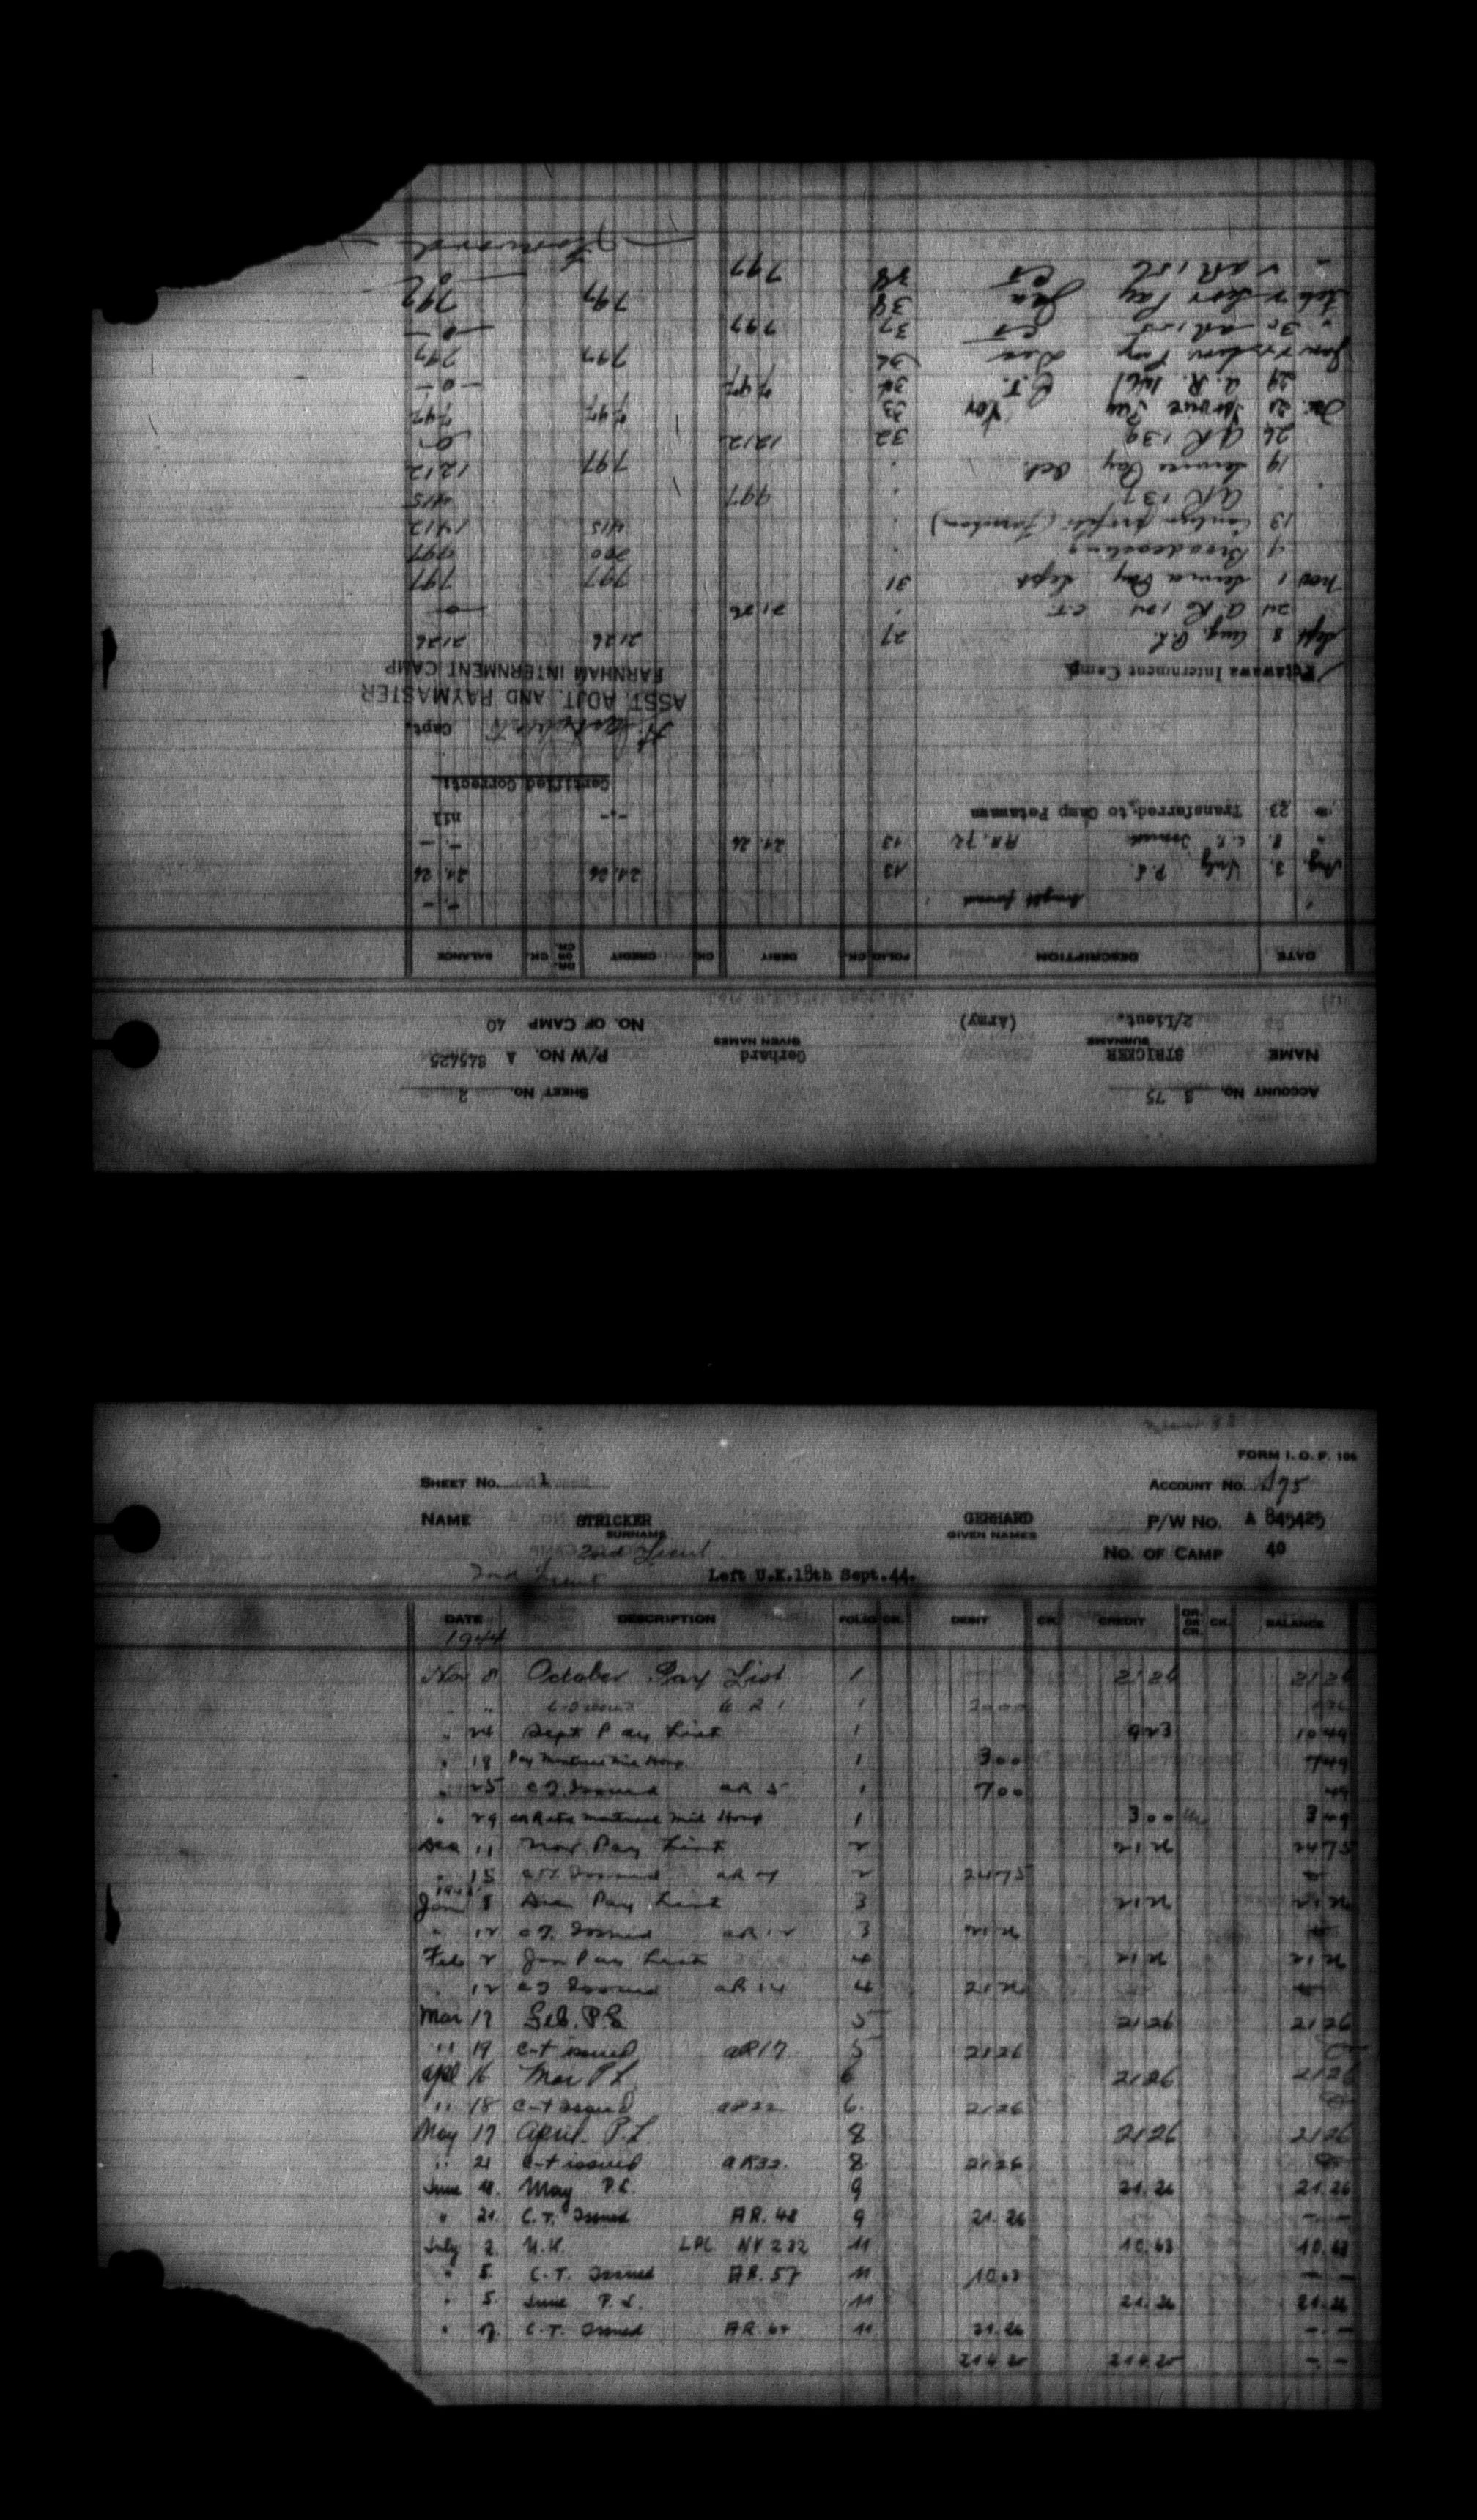 FORM I. O. F. 106
SHEET NO. 1 ACCOUNT NO. 75
NAME STRICKER GERHARD P/W NO. A 845425
SURNAME GIVEN NAMES
2nd Lieut. NO. OF CAMP 40
2nd Lieut Left U.K.18th Sept.44.
DATE DESCRIPTION FOLIO CK. DEBIT CK. CREDIT DR. OR CR. CK. BALANCE
1944
Nov 8 October Pay List 1 21 26 21 26
" " 1 2000
" 24 Sept Pay List 1 9 23 10 49
" 18 Pay 1 3 00 7 49
" 25 C.T. Issued AR 5 1 7 00 49
" 29 1 3 00 3 49
Dec 11 Nov Pay List 2 21 26 24 75
" 15 C.T. Issued AR 7 2 24 75
Jan 8 Dec Pay List 3 21 26 21 26
" 12 C.T. Issued AR 12 3 21 26
Feb 2 Jan Pay List 4 21 26 21 26
12 C.T. Issued AR 14 4 21 26
Mar 17 Feb. P.L. 5 21 26 21 26
" 19 C-T issued AR17 5 21 26
Apl 16 Mar P.L. 6 21 26 21 26
" 18 C-T issued AR22 6. 21 26
May 17 April P.L. 8 21 26 21 26
" 21 C-T issued AR32. 8 21 26
June 11. May P.L. 9 21.26 21.26
" 21. C.T. Issued AR. 48 9 21.26 -.-
July 2. U.K. LPC NV 232 11 10.63 10.63
" 5. C.T. Issued AR. 57 11 10.63 -.-
" 5. June P.L. 11 21.26 21.26
" 17. C.T. Issued AR. 64 11 21.26 -.-
214 20 214 20 -.-
ACCOUNT NO. 3 75 SHEET NO. 2
NAME STRICKER Gerhard P/W NO. A 845425
SURNAME GIVEN NAMES
2/Lieut. (Army) NO. OF CAMP 40
DATE DESCRIPTION FOLIO CK. DEBIT CK. CREDIT DR. OR CR. CK. BALANCE
brought forward -.-
Aug. 3. July P.L. 13 21.26 21.26
" 8. C.T. Issued AR. 72 13 21.26 -.-
" 23 Transferred to Camp Petawawa -.- nil
Certified Correct:
Capt.
ASST. ADJT. AND PAYMASTER
FARNHAM INTERNMENT CAMP
Petawawa Internment Camp
Sept 8 Aug. P.L. 27 21 26 21 26
24 AR 104 C.T. " 21 26 -0-
Nov 1 Service Pay Sept 31 7 97 7 97
9 Broadcasting " 2 00 9 97
13 Canteen profits (Farnham) " 4 15 14 12
" AR 137 " 9 97 4 15
19 Service Pay Oct. " 7 97 12 12
26 AR 139 32 12 12 0
Dec 21 Service Pay Nov 33 7.97 7.97
29 A.R. 146 C.T. 34 7.97 -0-
Jan Service Pay Dec 36 7 97 7 97
" 30 AR 155 CT 37 7 97 -0-
Feb Serv Pay Jan 38 7 97 7 97
" AR 156 CT 38 7 97 0